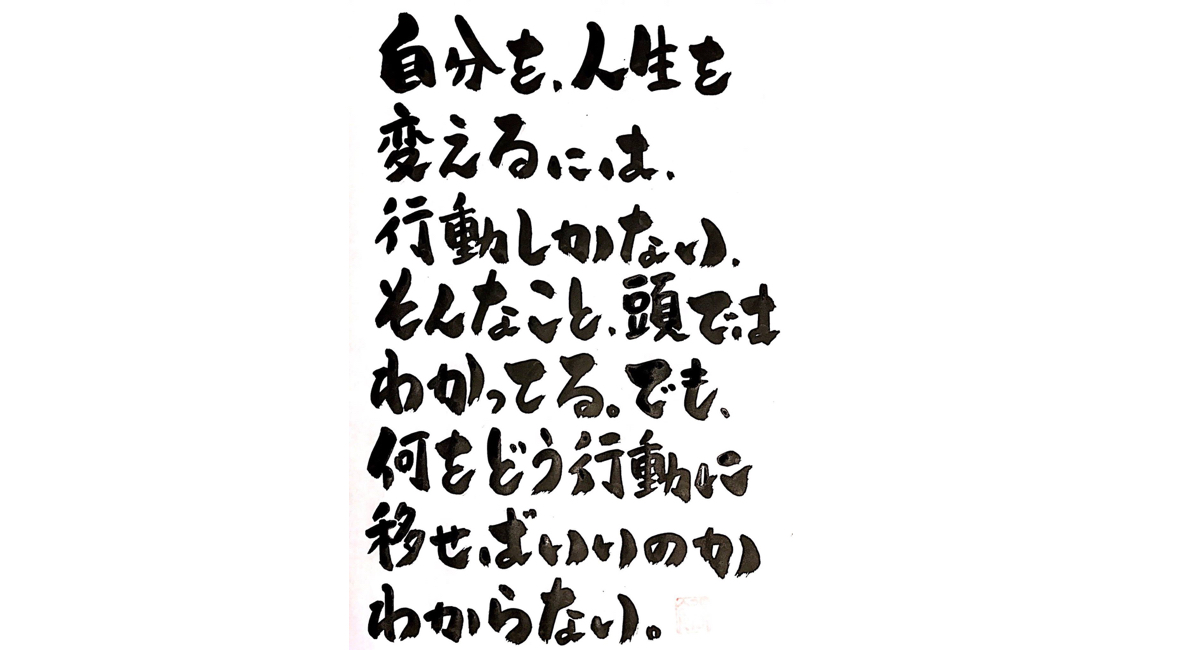 自分を、人生を
変えるには、
行動しかない、
そんなこと、頭では
わかってる。でも、
何をどう行動に
移せばいいのか
わからない。